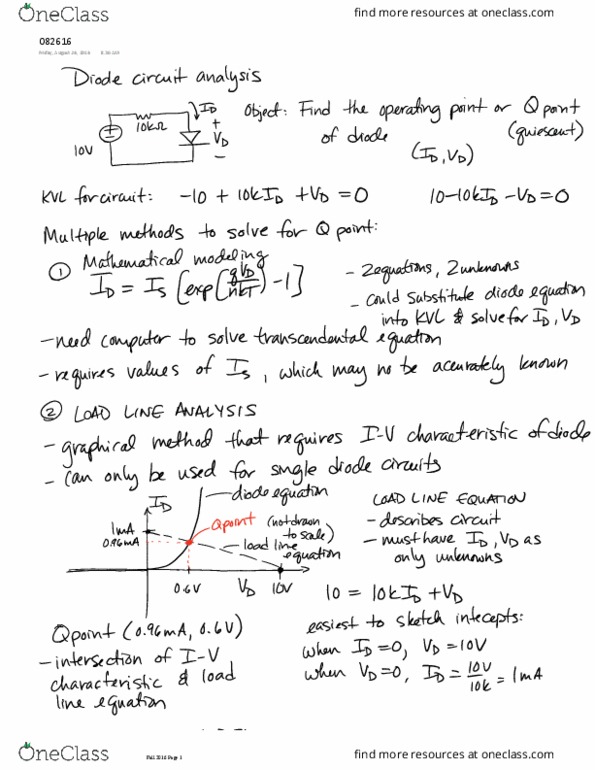 OneClass
find more resources at oneclass.com
082616
Friday, August 26, 2016
Diode circuit analysis
10V
10kΩ
I_D
+
V_D
−
Object: Find the operating point or Q point
of diode (quiescent)
(I_D, V_D)
KVL for circuit: −10 + 10kI_D + V_D = 0 10−10kI_D − V_D = 0
Multiple methods to solve for Q point:
① Mathematical modeling
I_D = I_S [exp(qV_D/nkT) −1]
− 2 equations, 2 unknowns
− could substitute diode equation
into KVL & solve for I_D, V_D
− need computer to solve transcendental equation
− requires values of I_S, which may no be accurately known
② LOAD LINE ANALYSIS
− graphical method that requires I-V characteristic of diode
− can only be used for single diode circuits
I_D
diode equation
1mA
0.96mA
Qpoint
(not drawn
to scale)
load line
equation
0.6V
V_D
10V
LOAD LINE EQUATION
− describes circuit
− must have I_D, V_D as
only unknowns
10 = 10kI_D + V_D
easiest to sketch intecepts:
when I_D = 0, V_D = 10V
when V_D = 0, I_D = 10V/10k = 1mA
Qpoint (0.96mA, 0.6V)
− intersection of I-V
characteristic & load
line equation
OneClass
Fall 2016 Page 1
find more resources at oneclass.com